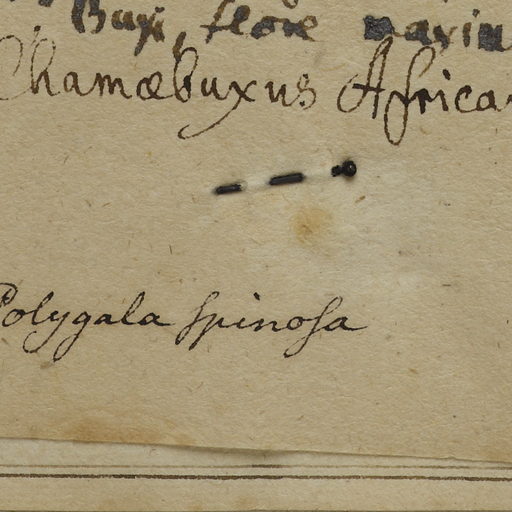 Buxi, flore
Chamæbuxus Africa
Polygala spinosa